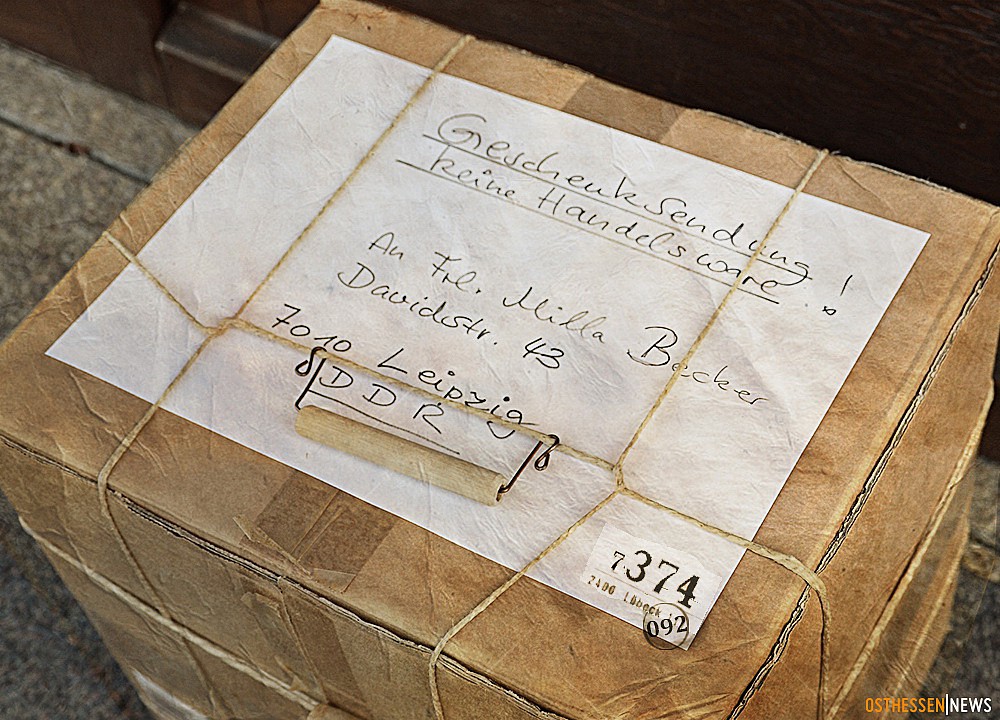 Geschenksendung
keine Handelsware !
An Frl. Milla Becker
Davidstr. 43
7010 Leipzig
DDR
7374
2400 Lübeck
092
OSTHESSEN|NEWS